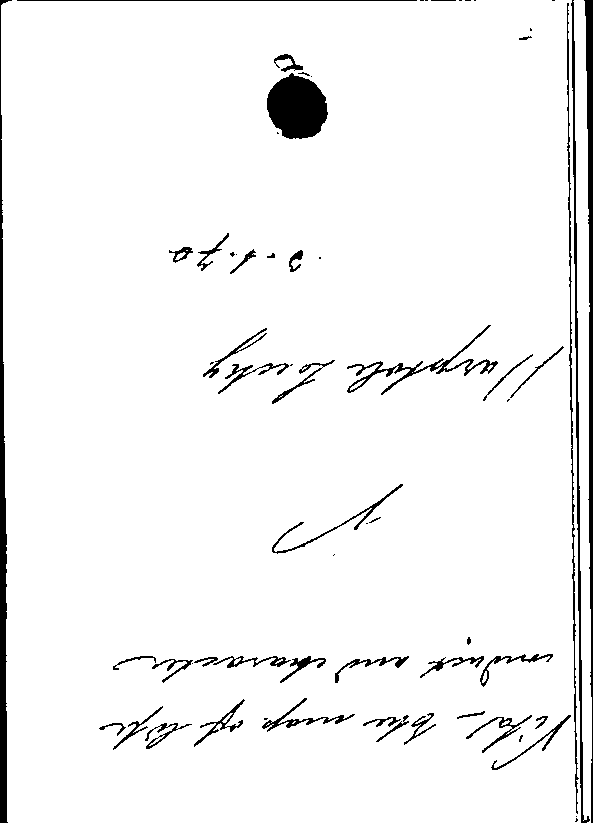 Vita - the map of life
conduct and character
Hartpole Lecky